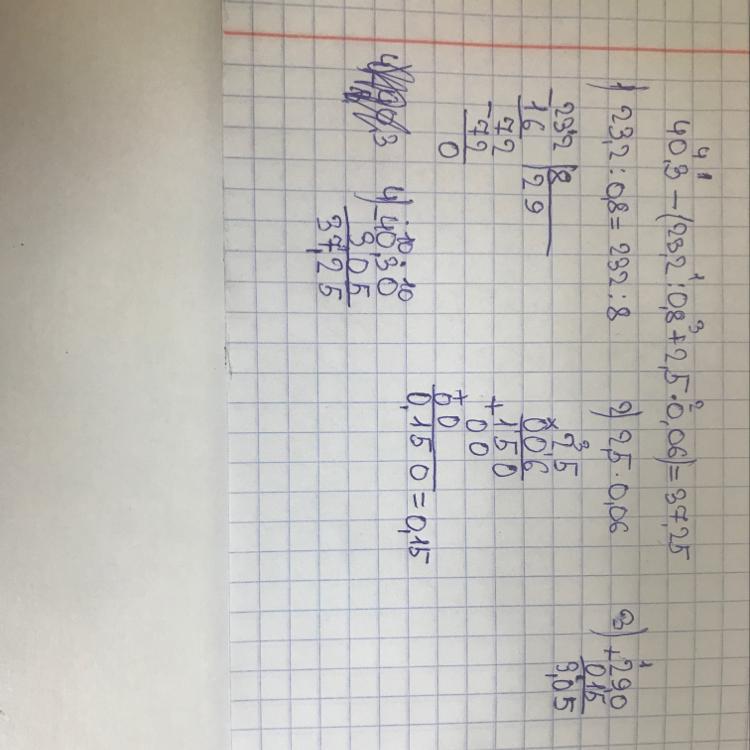 4 1 1 3 2
40,3 − (23,2 : 0,8 + 2,5 · 0,06) = 37,25
1) 23,2 : 0,8 = 232 : 8
− 232 | 8
16 | 29
− 72
72
0
2) 2,5 · 0,06
3
× 25
006
+ 150
00
+ 00
0,150 = 0,15
3) 1
+ 29,0
0,15
3,05
4) · 10 · 10
− 40,30
3 05
37,25